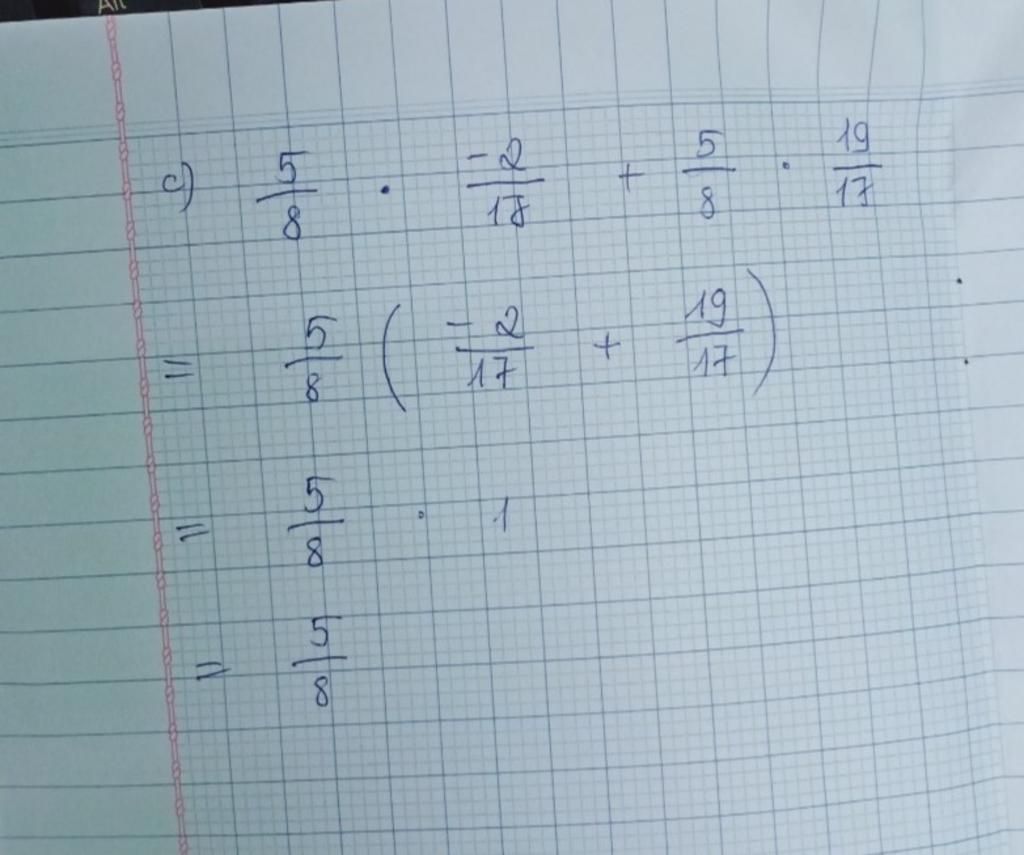 c) 5/8 · -2/17 + 5/8 · 19/17
= 5/8 ( -2/17 + 19/17 )
= 5/8 · 1
= 5/8